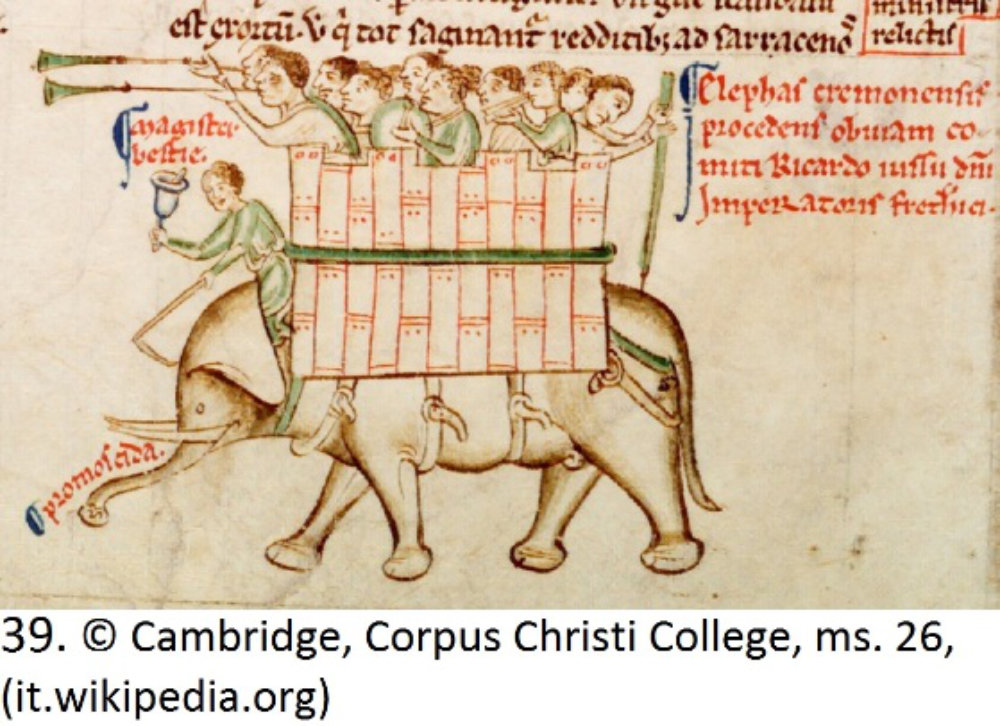 est erortū. V q̄ tot saginant̄ redditib; ad sarraceno
ministris
relictis
Elephas cremonensis
procedens obuiam co-
miti Ricardo iussu dn̄i
Imperatoris fretherici.
magister
bestie.
promoscida.
39. © Cambridge, Corpus Christi College, ms. 26,
(it.wikipedia.org)